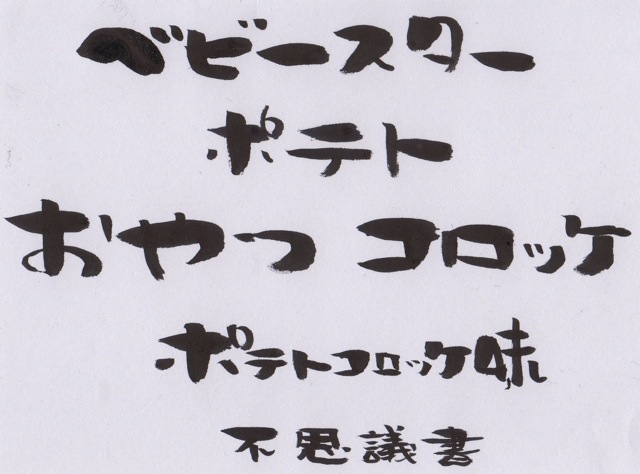 ベビースター
ポテト
おやつ コロッケ
ポテトコロッケ味
不思議書